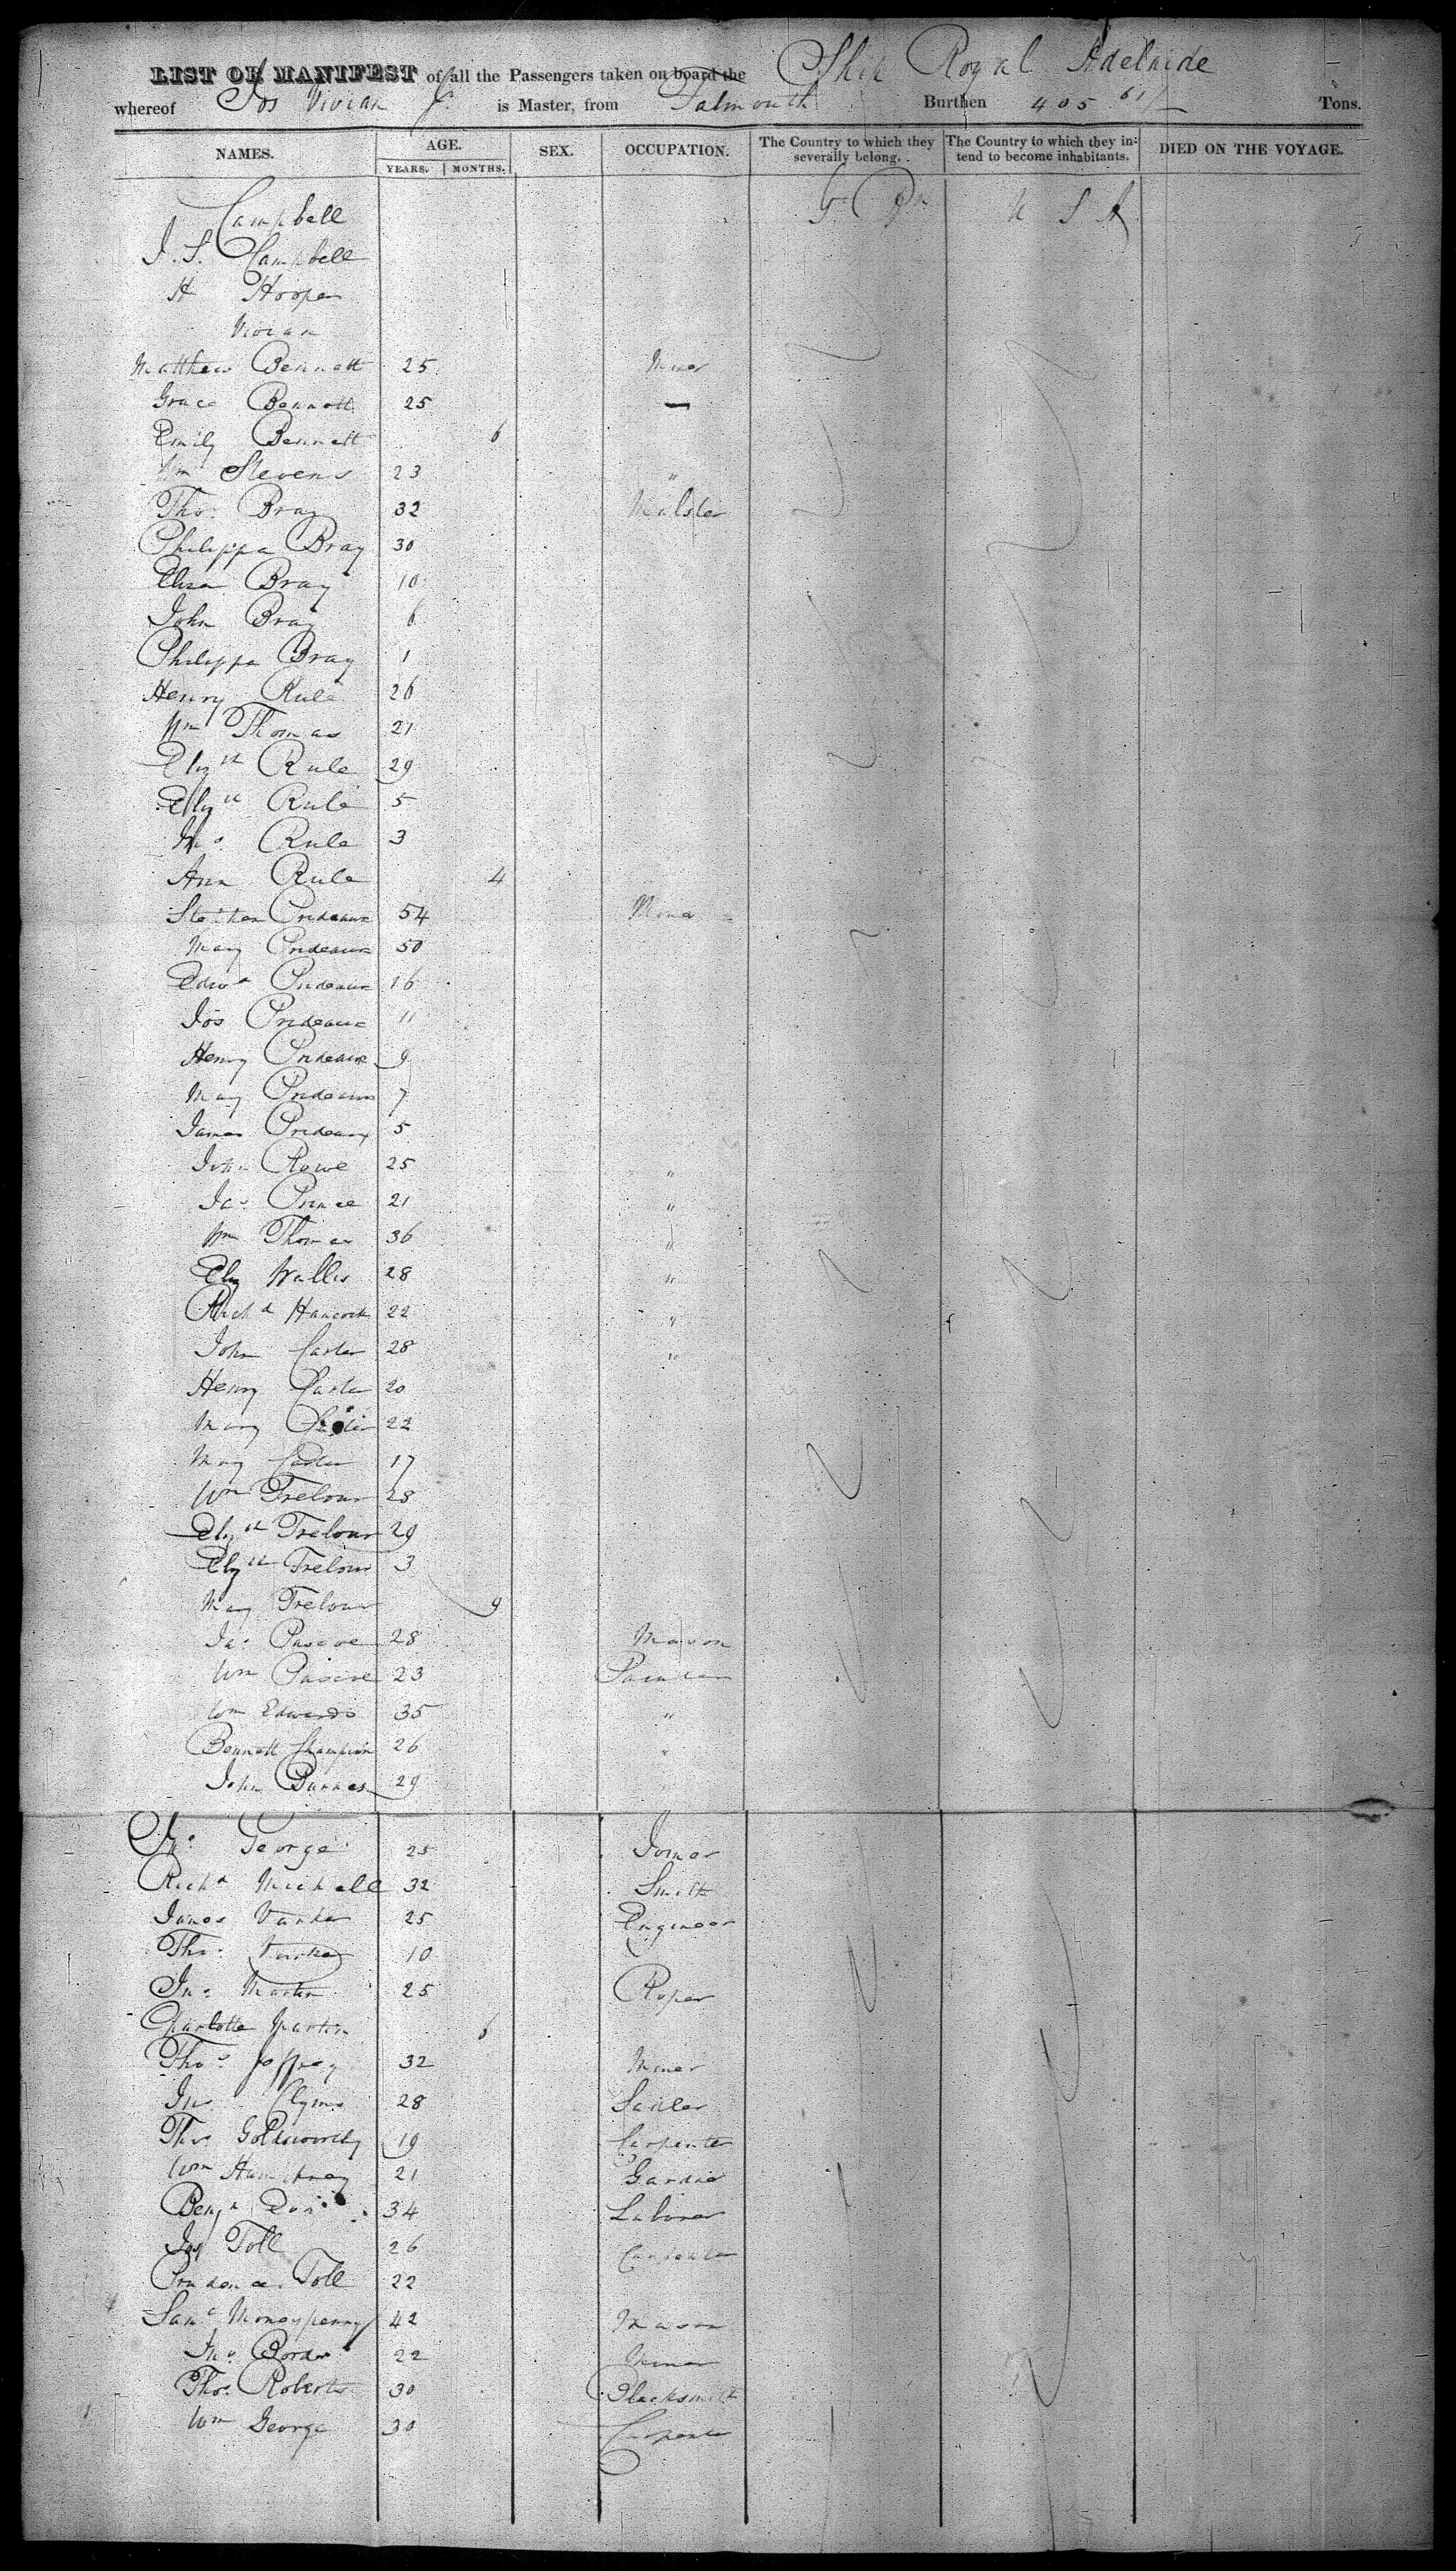 LIST OR MANIFEST of all the Passengers taken on board the Ship Royal Adelaide
whereof Jos Vivian Jr is Master, from Falmouth Burthen 405 61/ Tons.
NAMES. AGE. SEX. OCCUPATION. The Country to which they severally belong. The Country to which they intend to become inhabitants. DIED ON THE VOYAGE.
YEARS. MONTHS.
Campbell Gt Bn U S A
J. S. Campbell
H Hooper
Vivian
Matthew Bennett 25 Miner
Grace Bennett 25 —
Emily Bennett 6
Wm Stevens 23 "
Thos. Bray 32 Malster
Philippa Bray 30
Eliza Bray 10
John Bray 6
Philippa Bray 1
Henry Rule 26
Wm Thomas 21
Elizth Rule 29
Elizth Rule 5
Jno Rule 3
Ann Rule 4
Stephen Prideaux 54 Miner
Mary Prideaux 50
Edwd Prideaux 16
Jos Prideaux 11
Henry Prideaux 9
Mary Prideaux 7
James Prideaux 5
John Rowe 25 "
Jas Prince 21 "
Wm Thomas 36 "
Eliz Wallis 28 "
Richd Hancock 22 "
John Carter 28 "
Henry Carter 20
Mary Carter 22
Mary Carter 17
Wm Trelour 28
Elizth Trelour 29
Elizth Trelour 3
Mary Trelour 9
Jas Pascoe 28 Mason
Wm Pascoe 23
Wm Edwards 35 "
Bennett Champion 26 "
John Barnes 29 "
Jno George 25 Joiner
Richd Michell 32 Smith
James 25 Engineer
Thos. 10
Jno Martin 25 Roper
Charlotte Martin 6
Thos Jeffrey 32 Miner
Jno Clymo 28 Sadler
Thos Goldsworthy 19 Carpenter
Wm Humphrey 21 Gardner
Benjn 34 Laborer
Jas Toll 26 Carpenter
Prudence Toll 22
Saml Moneypenny 42 Mason
Jno 22 Miner
Thos. Roberts 30 Blacksmith
Wm George 30 Carpenter